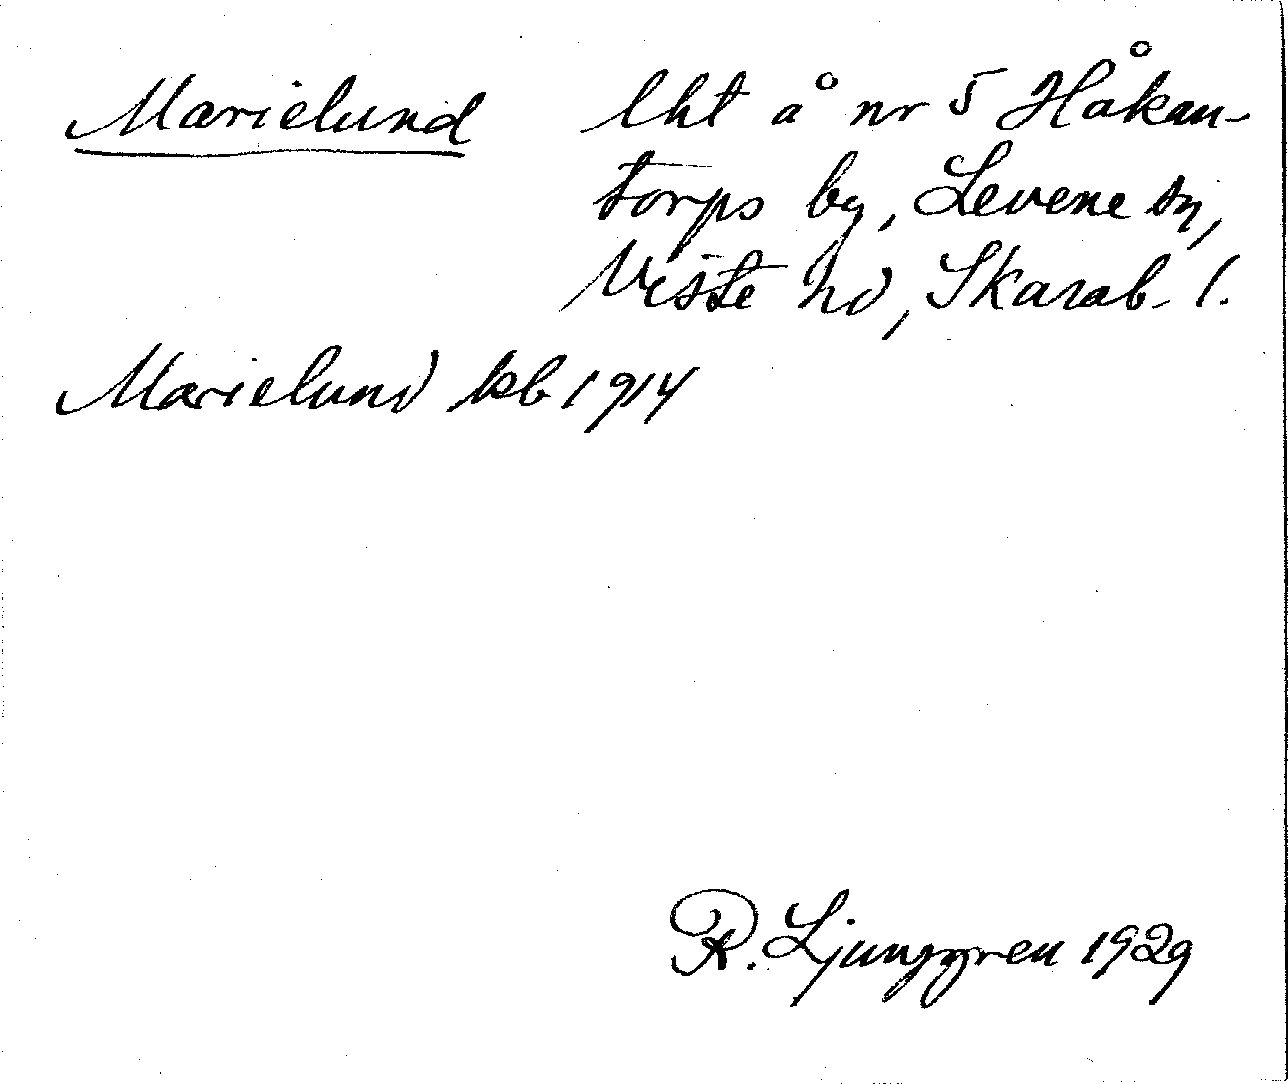 Marielund lht å nr 5 Håkan-
torps by, Levene sn,
Viste hd, Skarab. l.
Marielund kb 1914
R. Ljunggren 1929